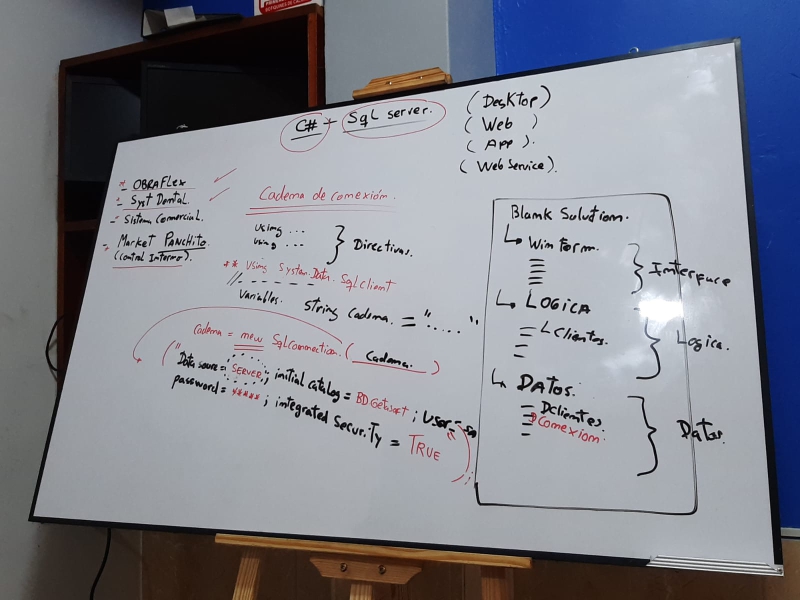 C# + SqL server.
(Desktop)
(Web)
(App).
(Web Service).
- OBRAFLex
- Syst Dental.
- Sistema Comercial.
- Market Panchito.
(Control Interno).
Cadena de conexión.
Using ...
using ...
} Directivas.
** Using System.Data.SqlClient
Variables.
String Cadena. = "....."
cadena = new SqlConnection (Cadena)
(" Data source= SERVER; initial catalog = BD.Getsoft ; User = sa
password = *****; integrated Security = TRUE ");
Blank Solution.
↳ Win Form.
} Interface
↳ LOGICA
LClientes.
} Logica.
↳ DATOS.
Dclientes
Conexion
} Datos.